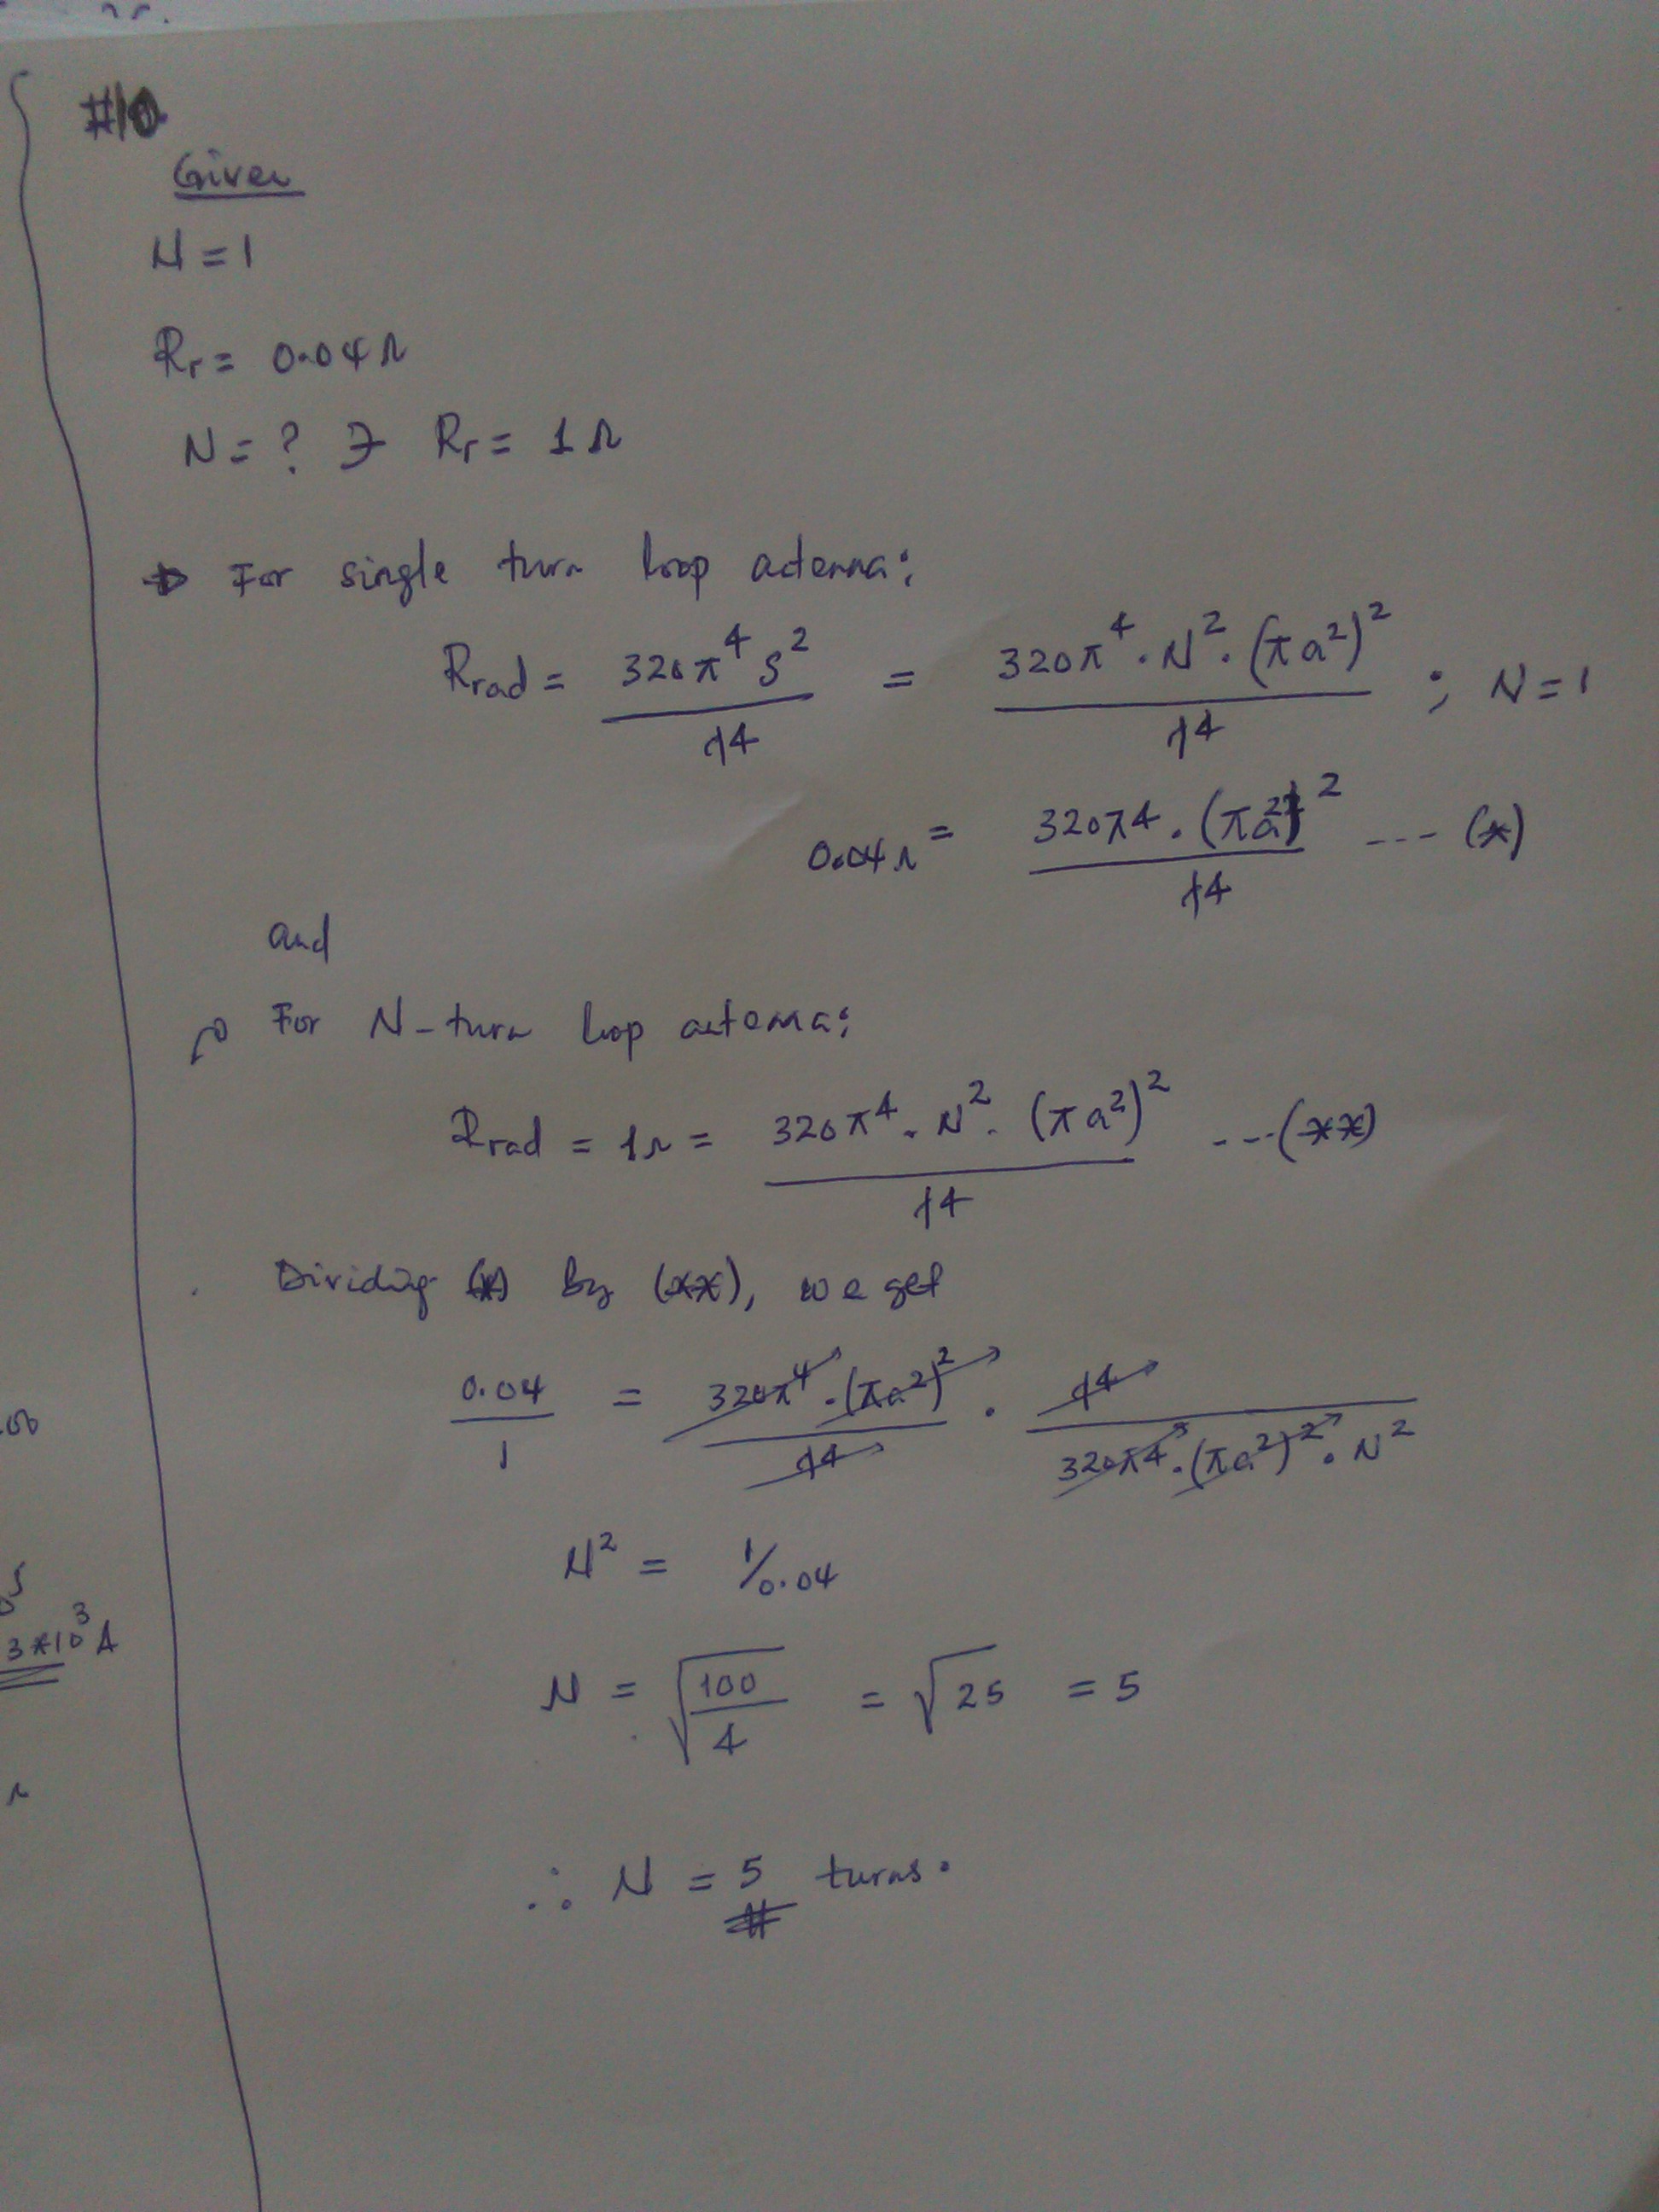 #10
Given
N = 1
Rr = 0.04 Ω
N = ? ∋ Rr = 1 Ω
→ For single turn loop actenna:
Rrad = 320π⁴ S² / λ⁴ = 320π⁴ · N² · (πa²)² / λ⁴ ; N = 1
0.04 Ω = 320π4 · (πa²)² / λ4 --- (*)
and
→ For N-turn loop actenna:
Rrad = 1 Ω = 320π⁴ · N² · (πa²)² / λ4 --- (**)
Dividing (*) by (**), we get
0.04 / 1 = 320π⁴ · (πa²)² / λ4 · λ4 / 320π4 · (πa²)² · N²
N² = 1/0.04
N = √(100 / 4) = √25 = 5
3*10³ A
∴ N = 5 turns.